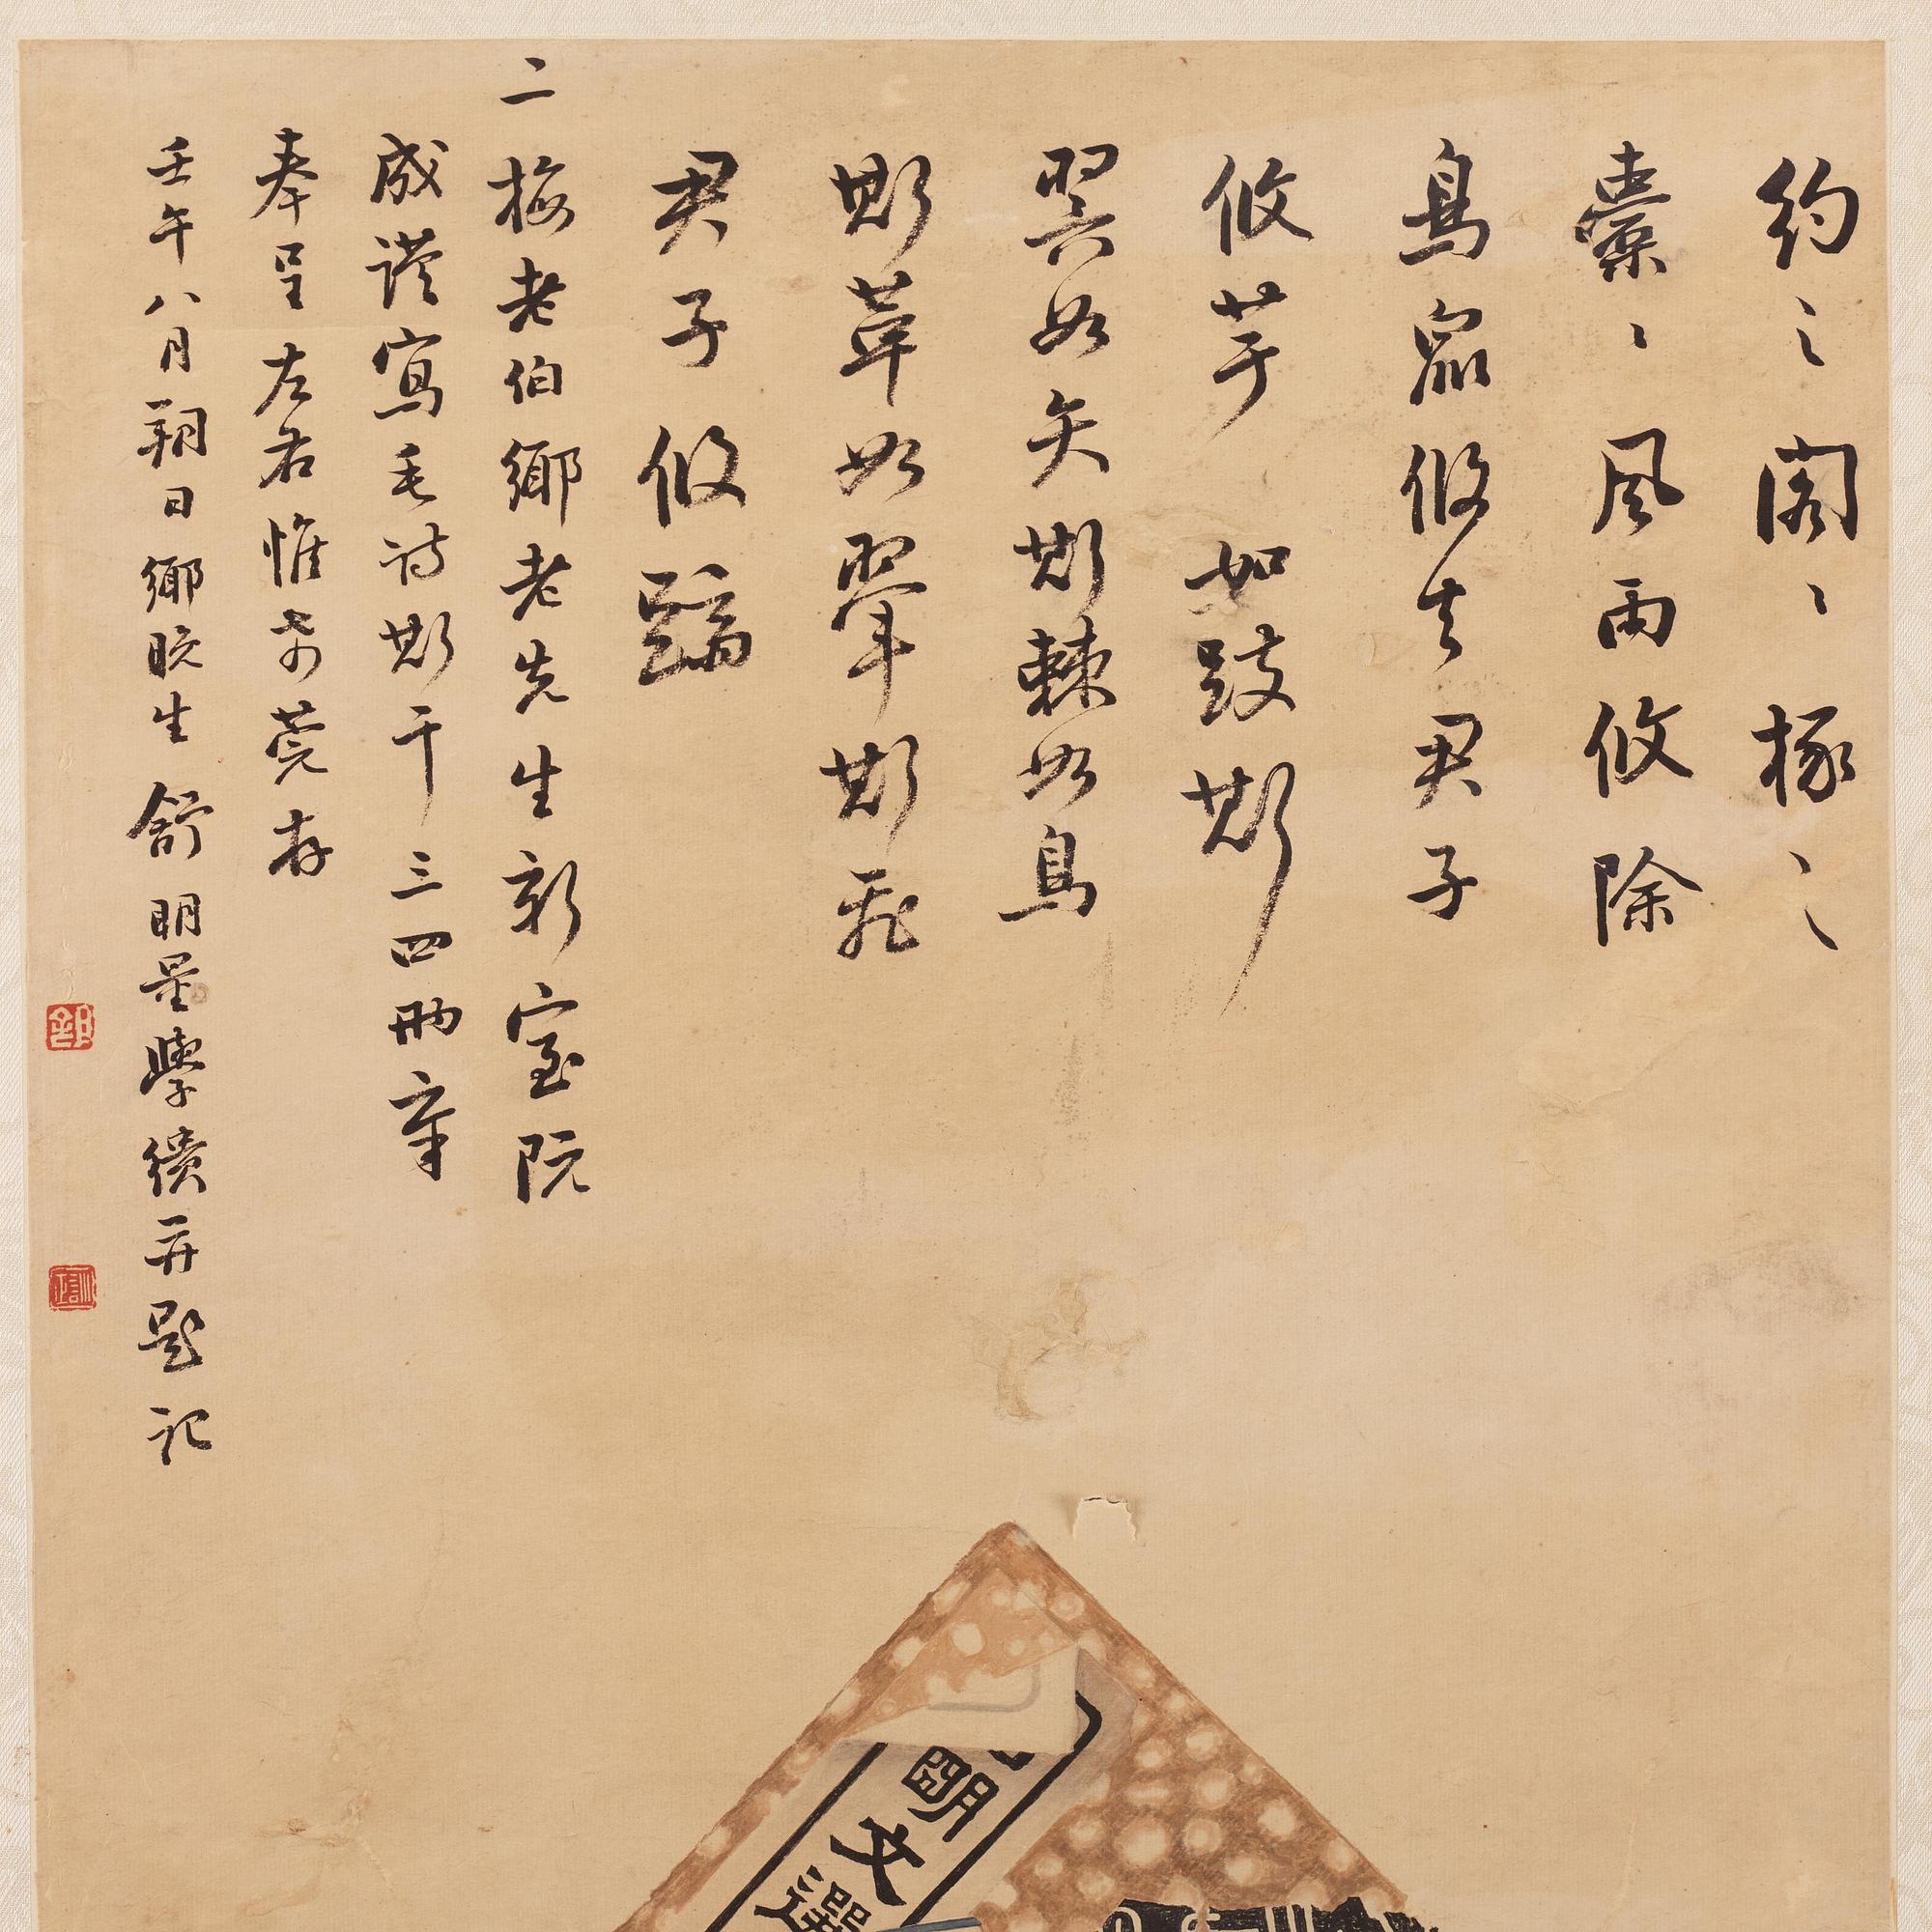 約之閣〻椓之
橐〻風雨攸除
鳥鼠攸去君子
攸芋 如跂斯
翼如矢斯棘如鳥
斯革如翬斯飛
君子攸躋
二梅老伯鄉老先生新室既
成謹寫毛詩斯干三四兩章
奉呈左右惟希莞存
壬午八月朔日鄉晚生舒明星學繢并題記
明文選